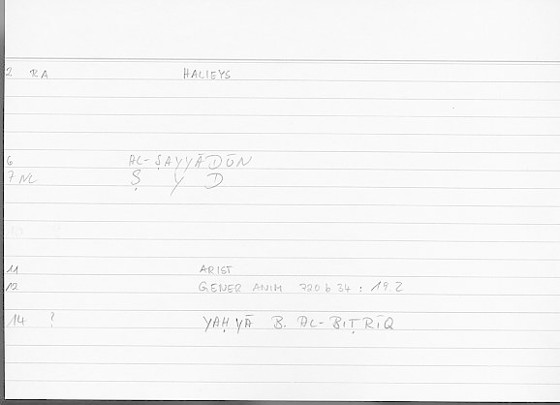 2 RA HALIEYS
6 AL-ṢAYYĀDŪN
7 NL Ṣ Y D
11 ARIST
12 GENER ANIM 720 b 34 : 19 2
14 ? YAḤYĀ B. AL-BIṬRĪQ